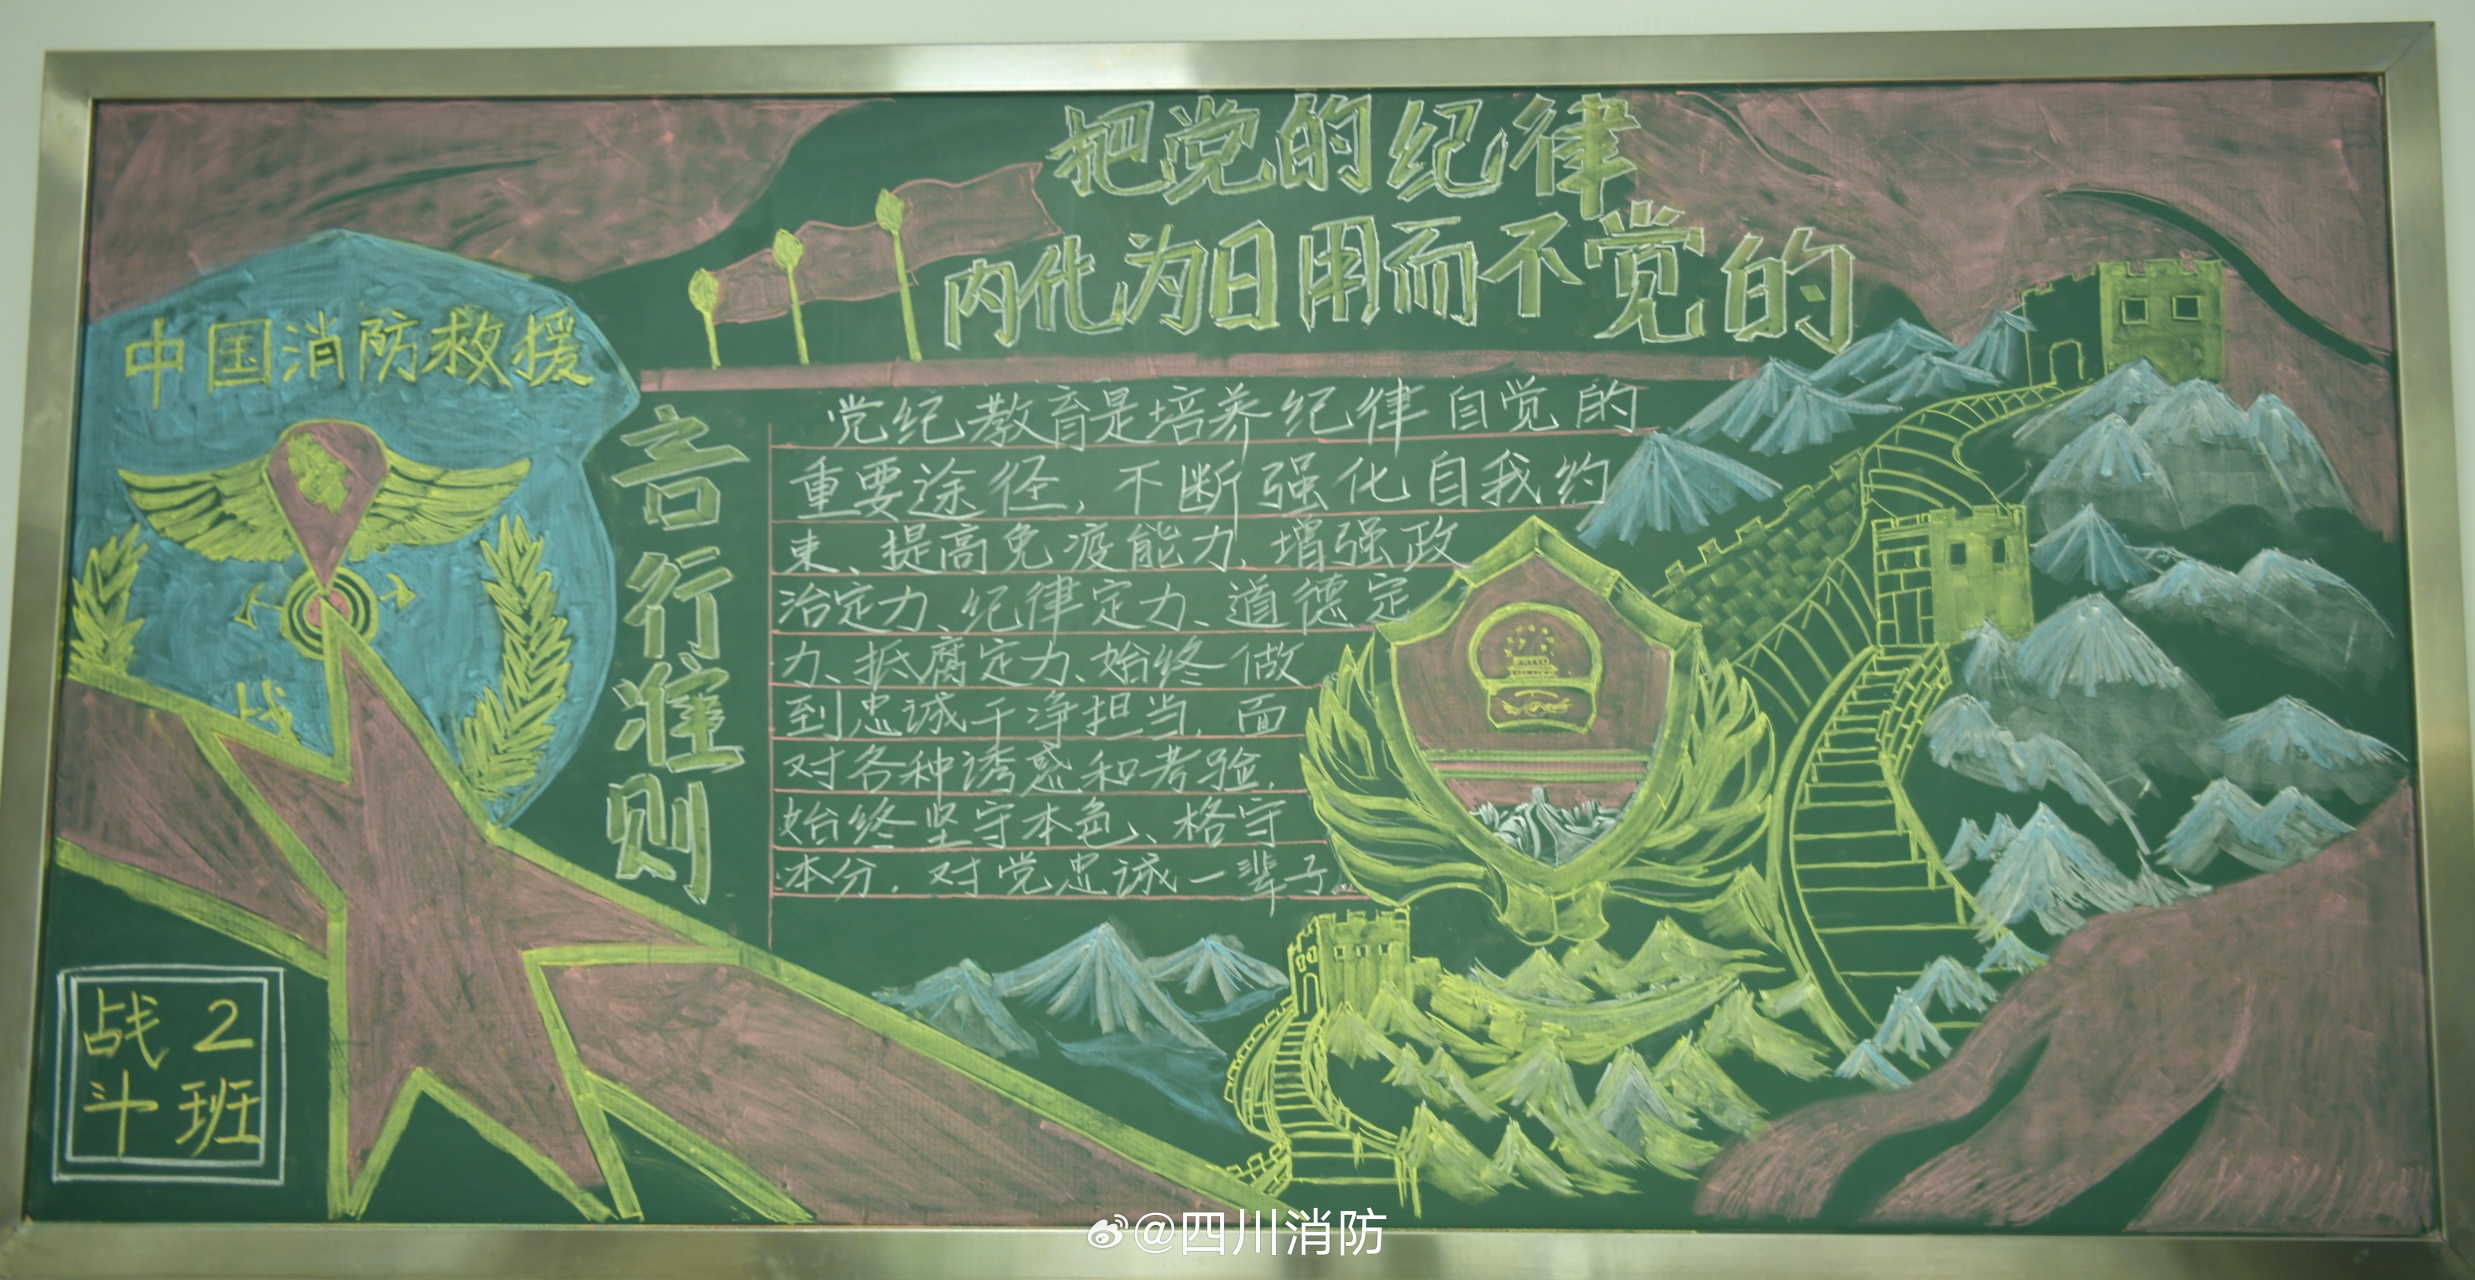 把党的纪律
内化为日用而不觉的
言行准则
中国消防救援
战
党纪教育是培养纪律自觉的
重要途径，不断强化自我约
束、提高免疫能力，增强政
治定力、纪律定力、道德定
力、抵腐定力、始终做
到忠诚干净担当，面
对各种诱惑和考验，
始终坚守本色、格守
本分，对党忠诚一辈子。
战 2
斗 班
@四川消防